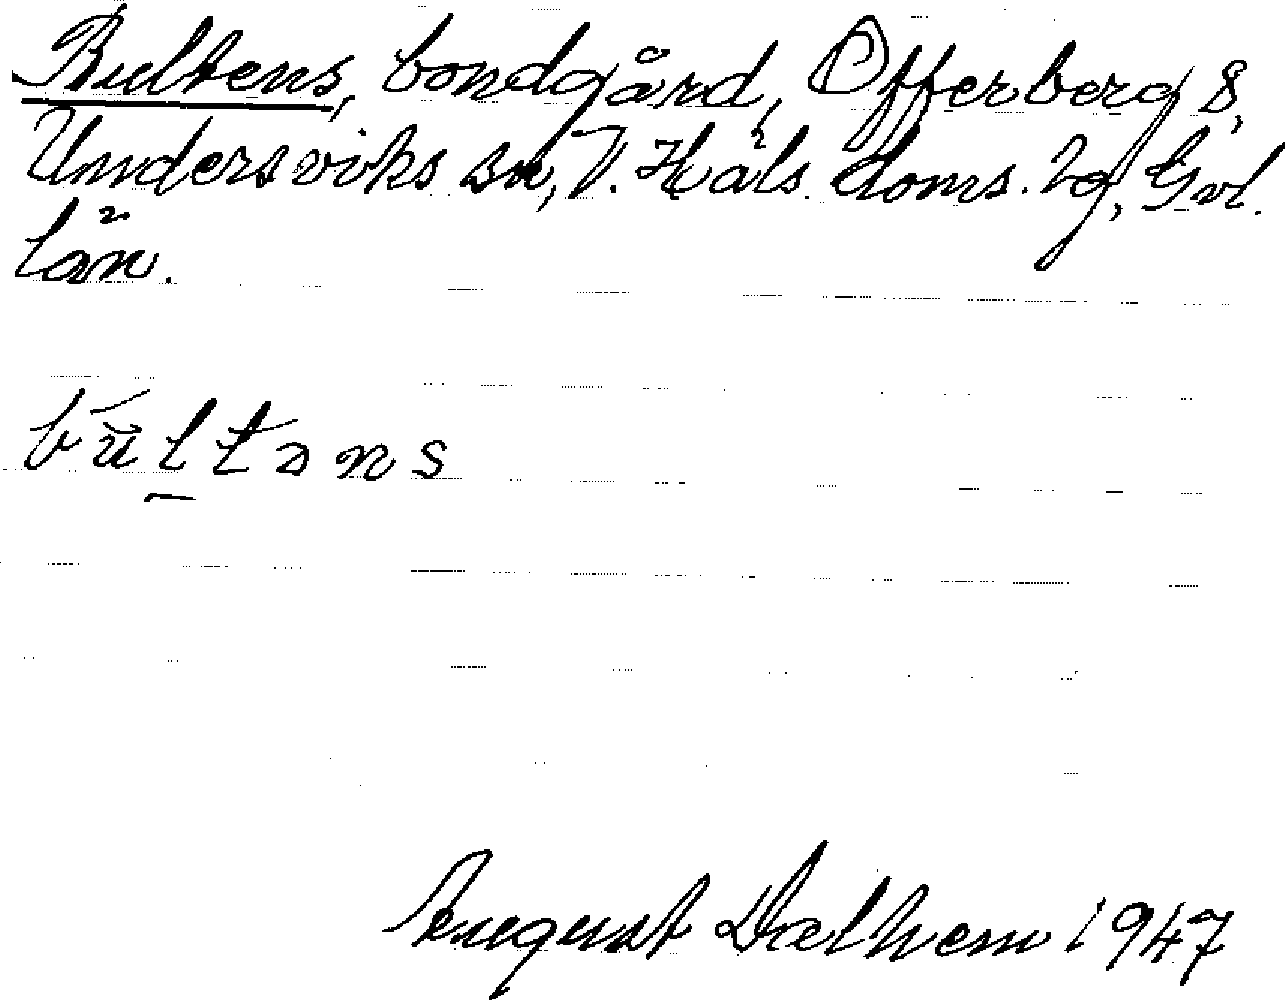 Bultens, bondgård, Offerberg 8,
Undersviks sn, V. Häls. doms. lg, Gvl.
län.
bultəns
August Dalhem 1947